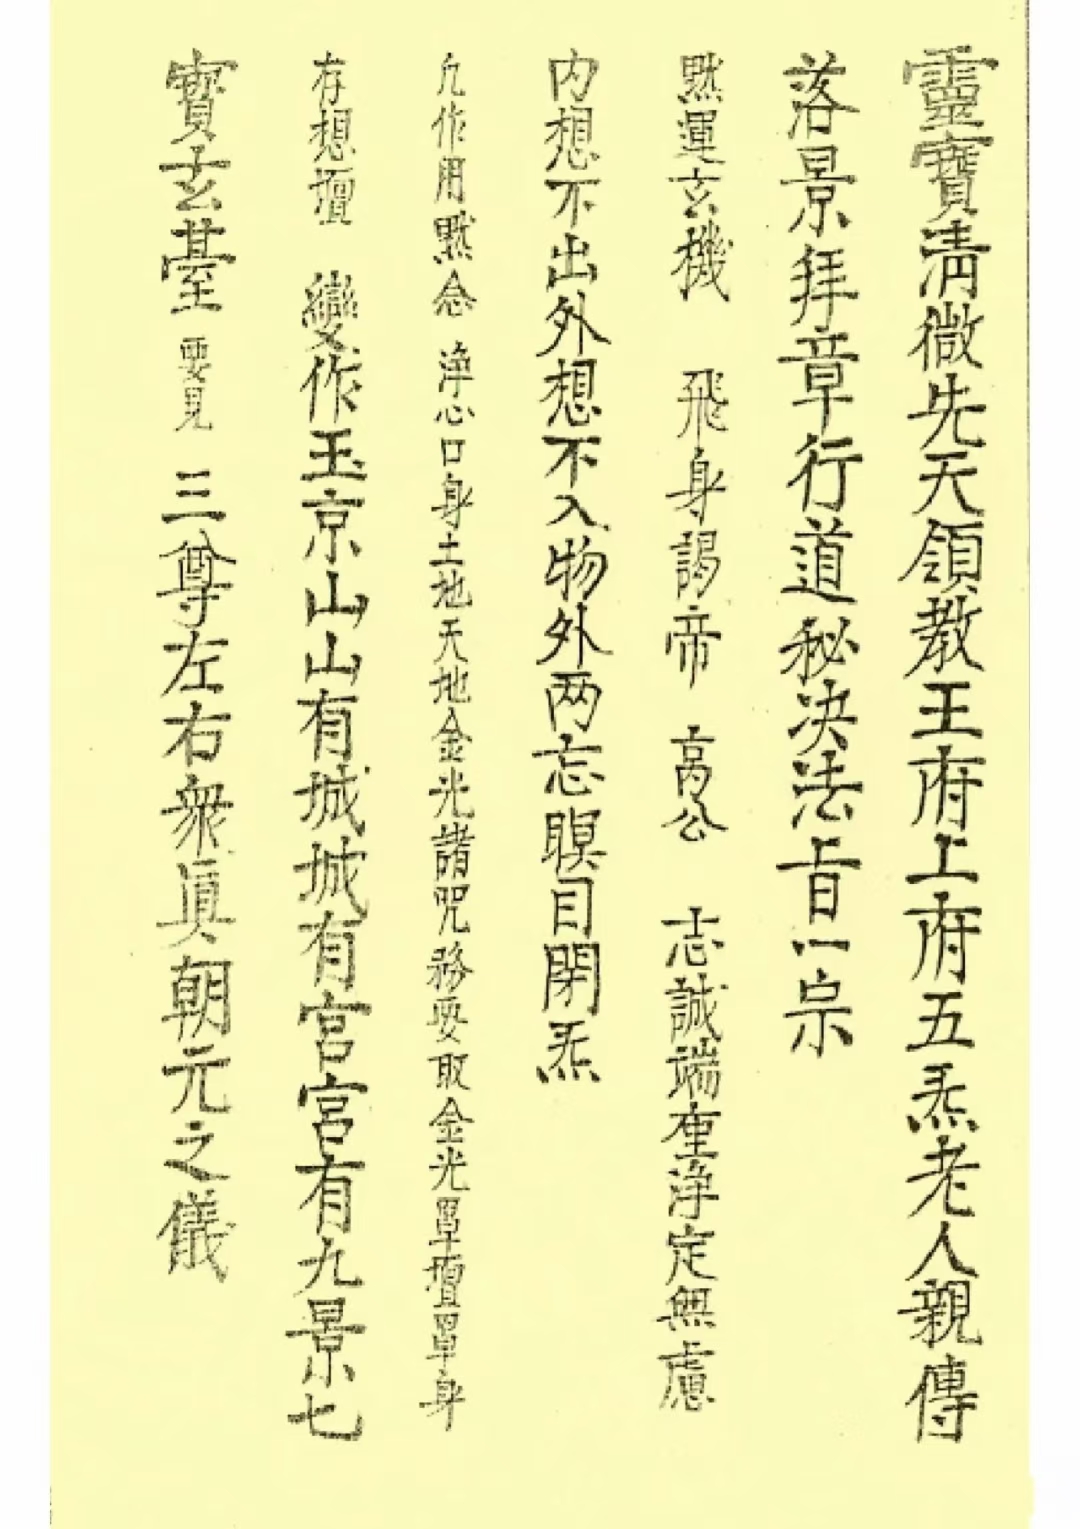 靈寶清微先天領教王府上府五炁老人親傳
落景拜章行道秘决法旨一宗
默運玄機 飛身謁帝 高公 志誠端重淨定無慮
内想不出外想不入物外两忘瞑目閉炁
凢作用默念 淨心口身土地天地金光諸咒務要取金光罩壇罩身
存想壇 變作玉京山山有城城有宫宫有九景七
寳玄臺 要見 三尊左右衆眞朝元之儀